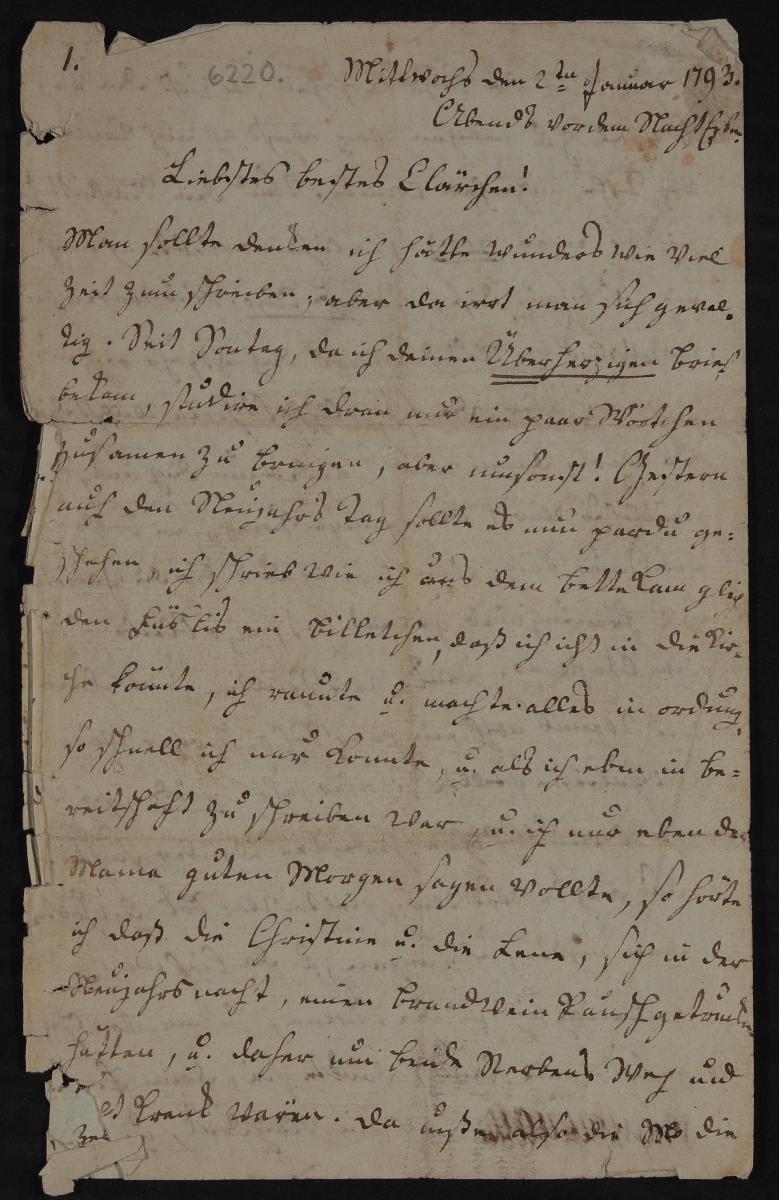 1.
6220.
Mittwochs den 2tn Januar 1793.
Abends vor dem Nacht Eßen.
Liebstes bestes Clärchen!
Man sollte denken ich hätte wunders wie viel
Zeit zum schreiben, aber da irrt man sich gewal-
tig. Seit Sontag, da ich deinen Überherzigen brief
bekam, studire ich dran nur ein paar Wörtchen
zusamen zu bringen, aber umsonst! Gestern
auf den Neujahrs Tag sollte es nun pardu ge-
schehen, ich schrieb wie ich aus dem bette kam glich
den Füslis ein billetchen, daß ich nicht in die Kir-
che konnte, ich raumte u. machte alles in ordnung,
so schnell ich nur konnte, u. als ich eben in be-
reitschaft zu schreiben war, u. ich nur eben der
Mama guten Morgen sagen wollte, so hörte
ich daß die Christine u. die Lene, sich in der
Neujahrs nacht, einen brandwein Rausch getrunken
hatten, u. daher nun beide sterbens Weh und
krank waren. da also die die